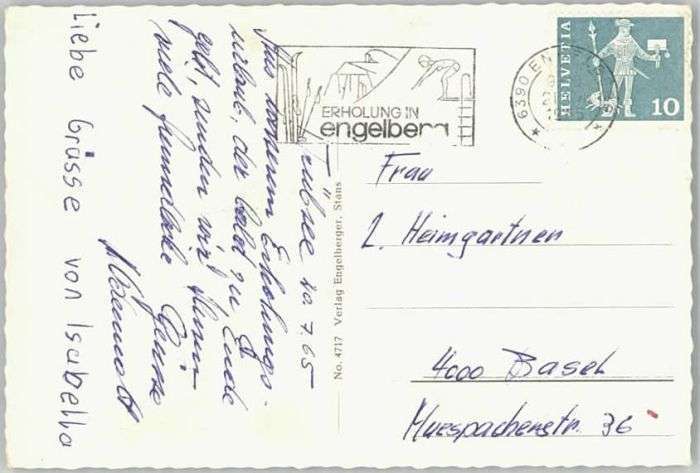 HELVETIA
10
6390 EN
ERHOLUNG IN
engelberg
Frau
L. Heimgartner
4000 Basel
Muespacherstr. 36
No. 4717 Verlag Engelberger, Stans
Trübsee 20.7.65
Aus unserem Erholungs-
urlaub, der bald zu Ende
geht, senden wir Ihnen
viele freundliche Grüsse
Liebe Grüsse von Isabella